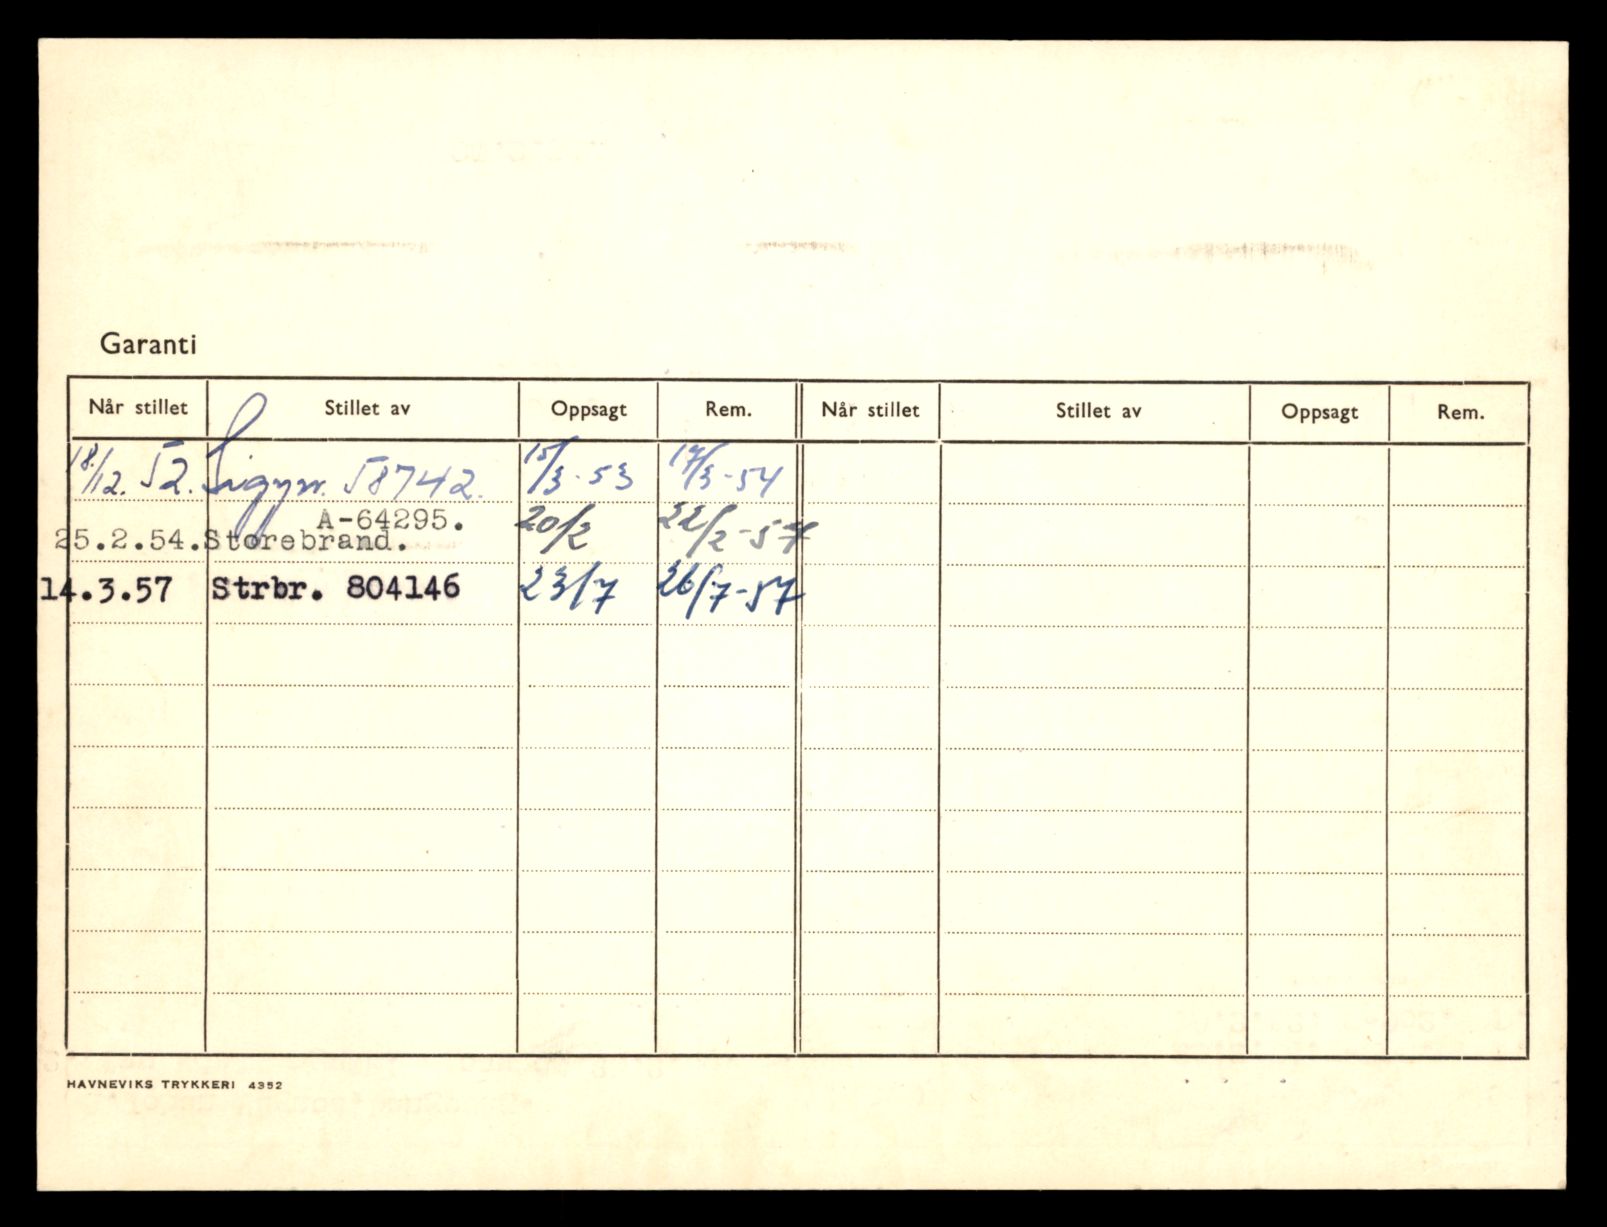 Garanti
Når stillet Stillet av Oppsagt Rem. Når stillet Stillet av Oppsagt Rem.
18/12. 52. Sigyn. 58742. 15/3-53 17/3-54
A-64295.
25.2.54. Storebrand. 20/2 22/2-57
14.3.57 Strbr. 804146 23/7 26/7-57
HAVNEVIKS TRYKKERI 4352